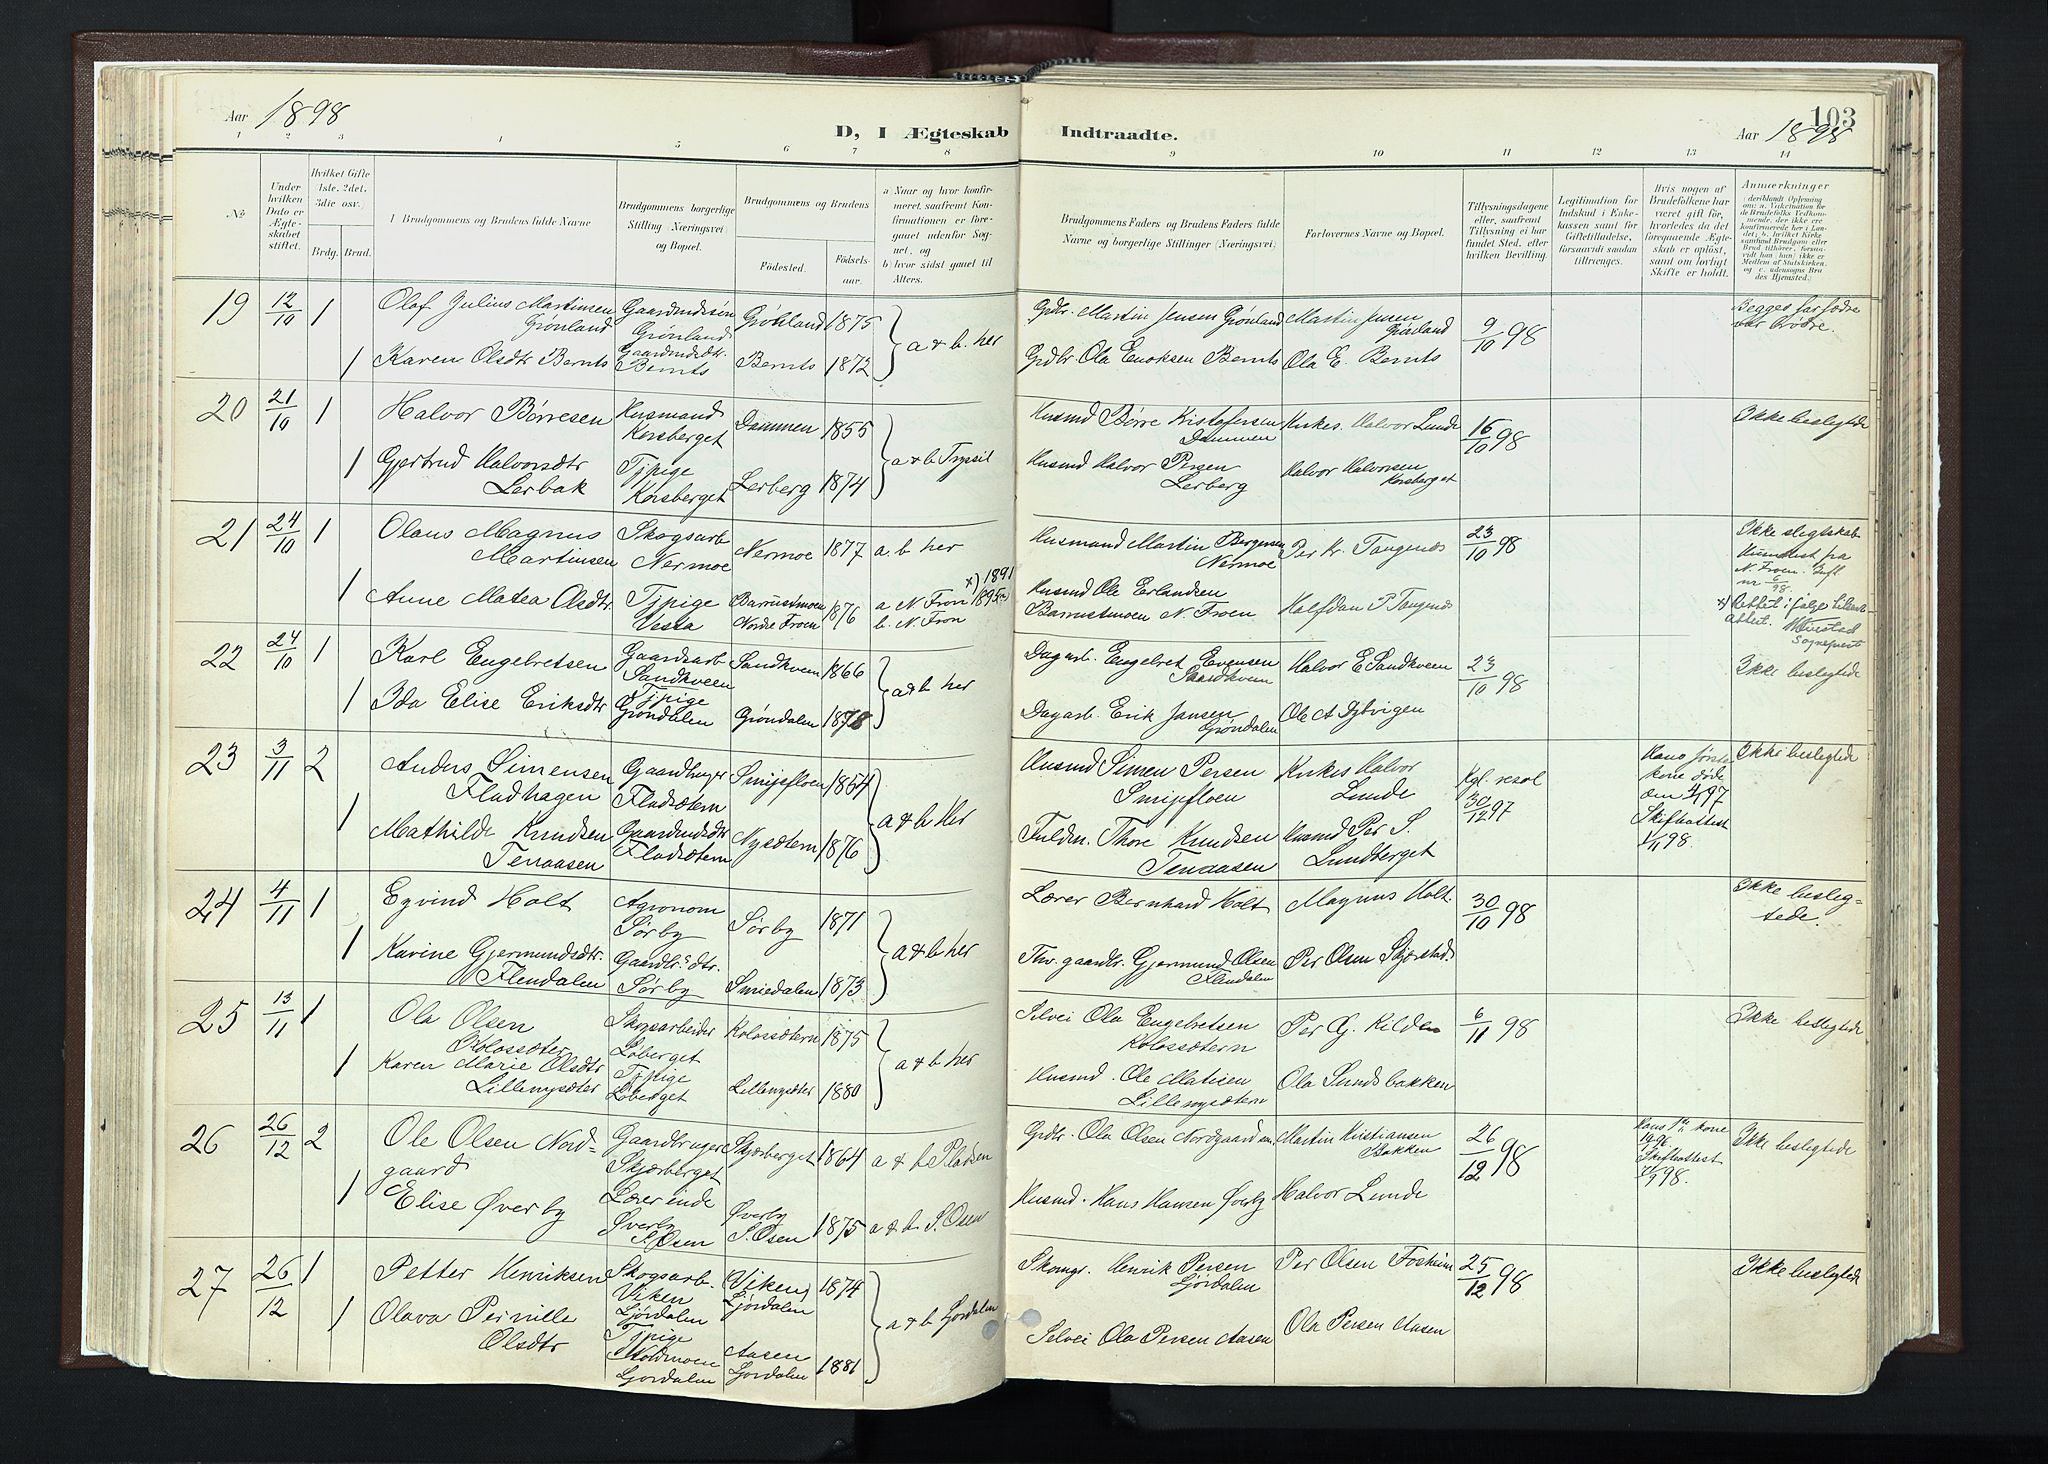 Aar 1898
D, I Ægteskab Indtraadte.
103
Aar 1898
1 2 3 4 5 6 7 8 9 10 11 12 13 14
№
Under hvilken Dato er Ægteskabet stiftet.
Hvilket Gifte 1ste, 2det, 3die osv.
Brdg. Brud.
Brudgommens og Brudens fulde Navne
Brudgommens borgerlige Stilling (Næringsvei) og Bopæl.
Brudgommens og Brudens
Fødested. Fødselsaar.
a) Naar og hvor konfirmeret, saafremt Konfirmationen er foregaaet udenfor Sognet, og
b) hvor sidst gaaet til Alters.
Brudgommens Faders og Brudens Faders fulde Navne og borgerlige Stillinger (Næringsvei)
Forlovernes Navne og Bopæl.
Tillysningsdagene eller, saafremt Tillysning ei har fundet Sted, efter hvilken Bevilling.
Legitimation for Indskud i Enkekassen samt for Giftetilladelse, forsaavidt saadan tiltrænges.
Hvis nogen af Brudefolkene har været gift før, hvorledes da det foregaaende Ægteskab er opløst, samt om lovligt Skifte er holdt.
Anmærkninger
19 12/10 1 Olaf Julius Martinsen Grønland Gaardmdssøn Grønland Grønland 1875 a & b. her
Grdbr. Martin Jensen Grønland Martin Jensen Grønland 9/10 98 Begges farfædre var brødre.
1 Karen Olsdtr Bernts Gaardmdsdtr. Bernts Bernts 1872
Grdbr. Ola Enoksen Bernts Ola E. Bernts
20 21/10 1 Halvor Børresen Husmand Korsberget Dammen 1855 a & b Trysil
Husmd Børre Kristofersen Dammen Kirkes. Halvor Lunde 16/10 98 Ikke beslegtede
1 Gjertrud Halvorsdtr Lerbak Tjpige Korsberget Lerberg 1874
Husmd Halvor Persen Lerberg Halvor Halvorsen Korsberget
21 24/10 1 Olaus Magnus Martinsen Skogsarb Nermoe Nermoe 1877 a. b her
Husmand Martin Bergersen Nermoe Per Kr. Tangenæs 23/10 98 Ikke slegtskab
1 Anne Matea Olsdtr. Tjpige Vesta Barrustmoen Nordre Froen 1876 a N Fron x) 1891
b. N. Fron
Husmd Ole Erlandsen Barrustmoen N. Froen Halfdan P Tangenæs
N. Froen.
x) Rettet ifølge
attest.
Sogneprest
22 24/10 1 Karl Engebretsen Gaardsarb Sandkveen Sandkveen 1866 a & b her
Dagarb. Engebret Evensen Sandkveen Halvor E Sandkveen 23/10 98 Ikke beslegtede
1 Ida Elise Eriksdtr Tjpige Grøndalen Grøndalen 1878
Dagarb. Erik Jansen Grøndalen Ole A Dybvigen
23 3/11 2 Anders Simensen Fladhagen Gaardbruger Fladsætern Smijefloen 1854 a & b Her
Husmd Simen Persen Smijefloen Kirkes Halvor Lunde Kgl. resol 30/12 97 Hans første kone døde Skifteattest 98. Ikke beslegtede
1 Mathilde Knudsen Tenaasen Gaardmdsdtr Fladsætern Nysætern 1876
Thore Knudsen Tenaasen Husmd Per S. Lundberget
24 4/11 1 Eyvind Holt Agronom Sørby Sørby 1871 a & b her
Lærer Bernhard Holt Magnus Holt. 30/10 98 Ikke beslegtede.
1 Karine Gjermundsdtr. Flendalen Gaardbr.s dtr. Sørby Smiedalen 1873
Fhv. gaardbr. Gjermund Olsen Flendalen Per Olsen Skjærstad
25 13/11 1 Ola Olsen Kolossæter Skogsarbeider Løberget Kolossætern 1875 a & b her
Selvei Ola Engebretsen Kolossætern Per G. Kilden 6/11 98 Ikke beslegtede
1 Karen Marie Olsdtr Lillenysæter Tjpige Løberget Lillenysæter 1880
Husmd. Ole Matisen Lillenysætern Ola Sundsbakken
26 26/12 2 Ole Olsen Nordgaard Gaardbruger Skjærberget Skjærberget 1864 a & b Pladsen
Grdbr. Ola Olsen Nordgaarden Martin Kristiansen Bakken 26/12 98 Hans 1ste kone 1896 Skifteattest 98. Ikke beslegtede
1 Elise Øverby Lærerinde Øverby S. Osen Øverby S. Osen 1875 a & b S. Osen
Husmd. Hans Hansen Øverby Halvor Lunde
27 26/12 1 Petter Henriksen Skogsarb. Viken Ljørdalen Viken Ljørdalen 1874 a & b Ljørdalen
Skomgr. Henrik Persen Ljørdalen Per Olsen Fosheim 25/12 98 Ikke beslegtede
1 Olava Pernille Olsdtr Tjpige Noldmoen Ljørdalen Aasen Ljørdalen 1881
Selvei Ola Persen Aasen Ola Persen Aasen